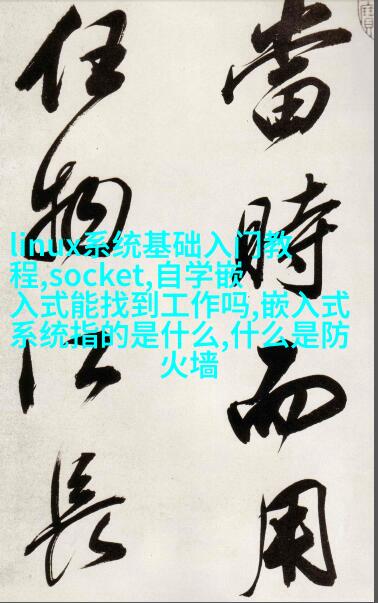 當時而用
任物長
linux系统基础入门教
程,socket,自学嵌
入式能找到工作吗,嵌入式
系统指的是什么,什么是防
火墙